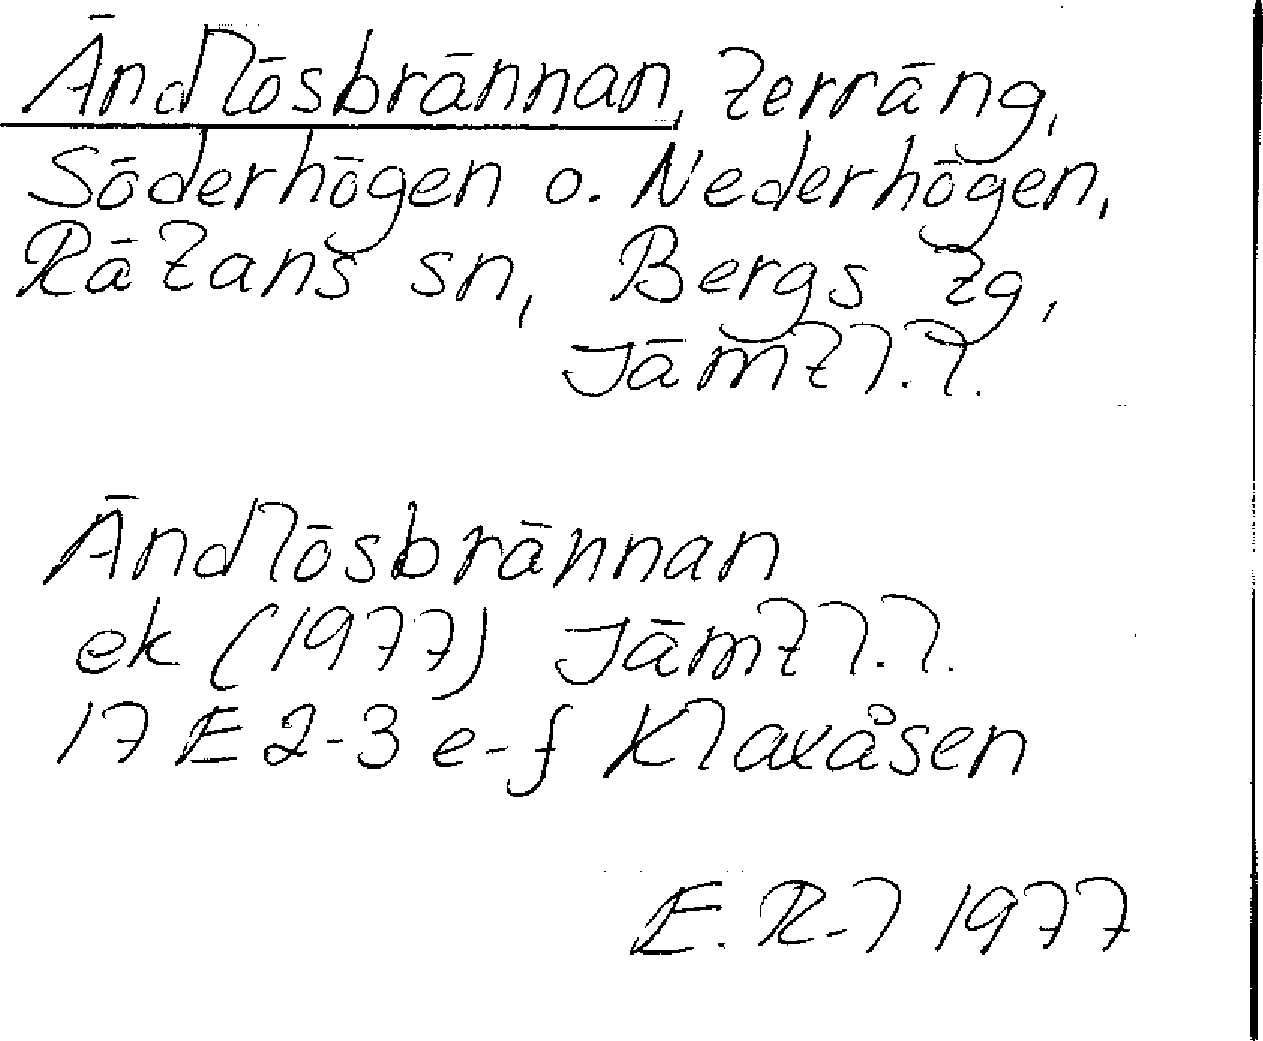 Ändlösbrännan, terräng,
Söderhögen o. Nederhögen,
Rätans sn, Bergs tg,
Jämtl. l.
Ändlösbrännan
ek (1977) Jämtl. l.
17 E 2-3 e-f Klaxåsen
E. R-l 1977